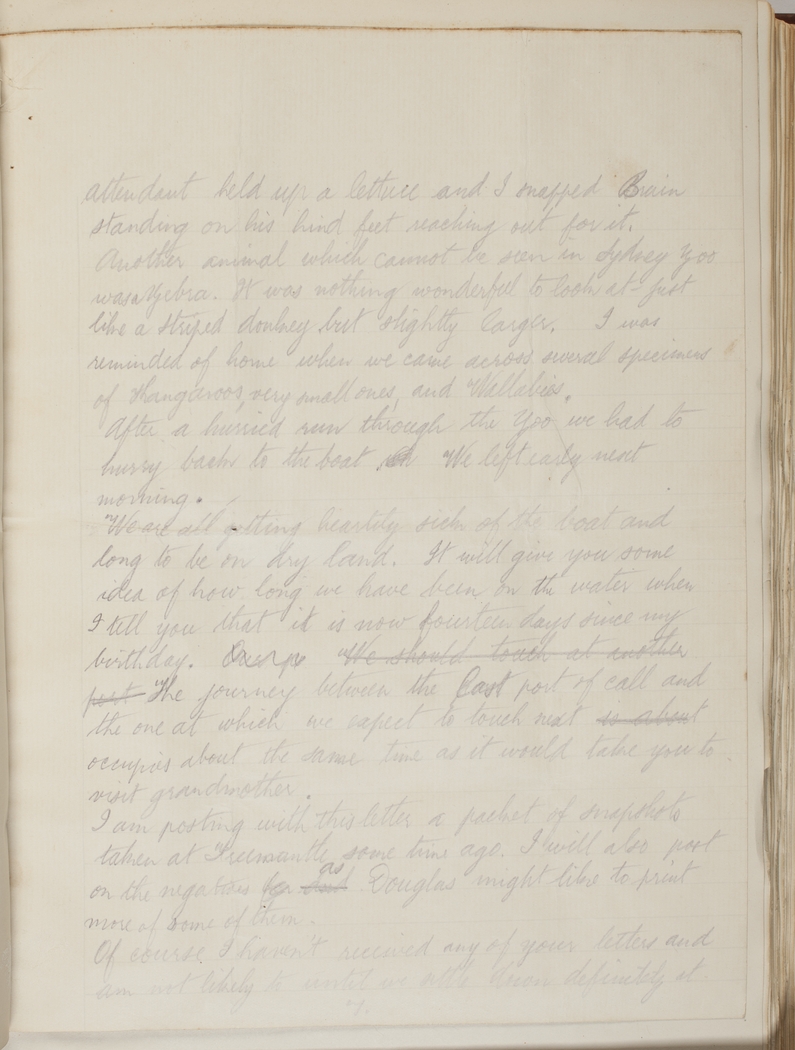 attendant held up a lettuce and I snapped Bruin
standing on his hind feet reaching out for it.
Another animal which cannot be seen in Sydney Zoo
was a Zebra. It was nothing wonderful to look at - just
like a striped donkey but slightly larger. I was
reminded of home when we came across several specimens
of Kangaroos, very small ones, and Wallabies.
After a hurried run through the Zoo we had to
hurry back to the boat We left early next
morning.
We are all getting heartily sick of the boat and
long to be on dry land. It will give you some
idea of how long we have been on the water when
I tell you that it is now fourteen days since my
birthday. We should touch at another
port The journey between the last port of call and
the one at which we expect to touch next is about
occupies about the same time as it would take you to
visit grandmother.
I am posting with this letter a packet of snapshots
taken at Freemantle some time ago. I will also post
on the negatives as Douglas might like to print
more of some of them.
Of course I haven't received any of your letters and
am not likely to until we settle down definitely at
7.